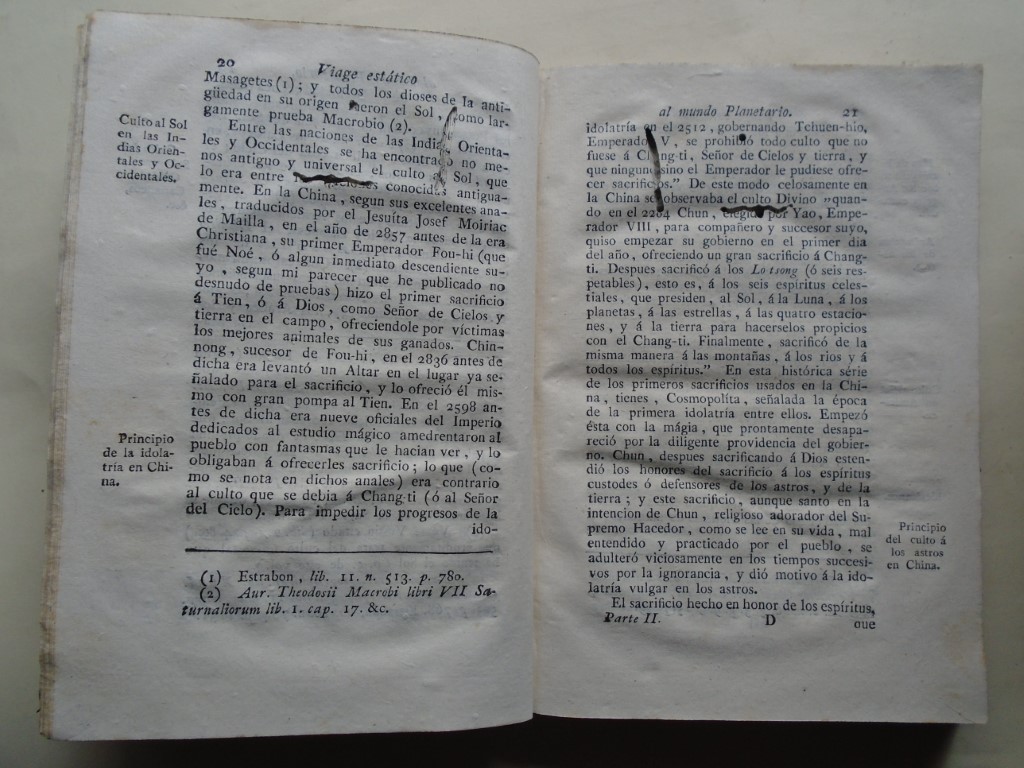 20
Viage estático
Masagetes (1); y todos los dioses de la anti-
güedad en su origen fueron el Sol, como lar-
gamente prueba Macrobio (2).
Culto al Sol
en las In-
dias Orien-
tales y Oc-
cidentales.
Entre las naciones de las Indias Orienta-
les y Occidentales se ha encontrado no me-
nos antiguo y universal el culto al Sol, que
lo era entre conocidas antigua-
mente. En la China, segun sus excelentes ana-
les, traducidos por el Jesuíta Josef Moiriac
de Mailla, en el año de 2857 antes de la era
Christiana, su primer Emperador Fou-hi (que
fué Noé, ó algun inmediato descendiente su-
yo, segun mi parecer que he publicado no
desnudo de pruebas) hizo el primer sacrificio
á Tien, ó á Dios, como Señor de Cielos y
tierra en el campo, ofreciendole por víctimas
los mejores animales de sus ganados. Chin-
nong, sucesor de Fou-hi, en el 2836 antes de
dicha era levantó un Altar en el lugar ya se-
ñalado para el sacrificio, y lo ofreció él mis-
mo con gran pompa al Tien. En el 2598 an-
tes de dicha era nueve oficiales del Imperio
dedicados al estudio mágico amedrentaron al
pueblo con fantasmas que le hacian ver, y lo
obligaban á ofrecerles sacrificio; lo que (co-
mo se nota en dichos anales) era contrario
al culto que se debia á Chang-ti (ó al Señor
del Cielo). Para impedir los progresos de la
ido-
Principio
de la idola-
tría en Chi-
na.
(1) Estrabon, lib. 11. n. 513. p. 780.
(2) Aur. Theodosii Macrobi libri VII Sa-
turnaliorum lib. 1. cap. 17. &c.
al mundo Planetario.
21
idolatría en el 2512, gobernando Tchuen-hio,
Emperador V, se prohibió todo culto que no
fuese á Chang-ti, Señor de Cielos y tierra, y
que ninguno sino el Emperador le pudiese ofre-
cer sacrificios." De este modo celosamente en
la China se observaba el culto Divino „quan-
do en el 2284 Chun, elegido por Yao, Empe-
rador VIII, para compañero y succesor suyo,
quiso empezar su gobierno en el primer dia
del año, ofreciendo un gran sacrificio á Chang-
ti. Despues sacrificó á los Lo tsong (ó seis res-
petables), esto es, á los seis espíritus celes-
tiales, que presiden, al Sol, á la Luna, á los
planetas, á las estrellas, á las quatro estacio-
nes, y á la tierra para hacerselos propicios
con el Chang-ti. Finalmente, sacrificó de la
misma manera á las montañas, á los rios y á
todos los espíritus." En esta histórica série
de los primeros sacrificios usados en la Chi-
na, tienes, Cosmopolíta, señalada la época
de la primera idolatría entre ellos. Empezó
ésta con la mágia, que prontamente desapa-
reció por la diligente providencia del gobier-
no. Chun, despues sacrificando á Dios esten-
dió los honores del sacrificio á los espíritus
custodes ó defensores de los astros, y de la
tierra; y este sacrificio, aunque santo en la
intencion de Chun, religioso adorador del Su-
premo Hacedor, como se lee en su vida, mal
entendido y practicado por el pueblo, se
adulteró viciosamente en los tiempos succesi-
vos por la ignorancia, y dió motivo á la ido-
latría vulgar en los astros.
Principio
del culto á
los astros
en China.
El sacrificio hecho en honor de los espíritus,
Parte II.
D
que